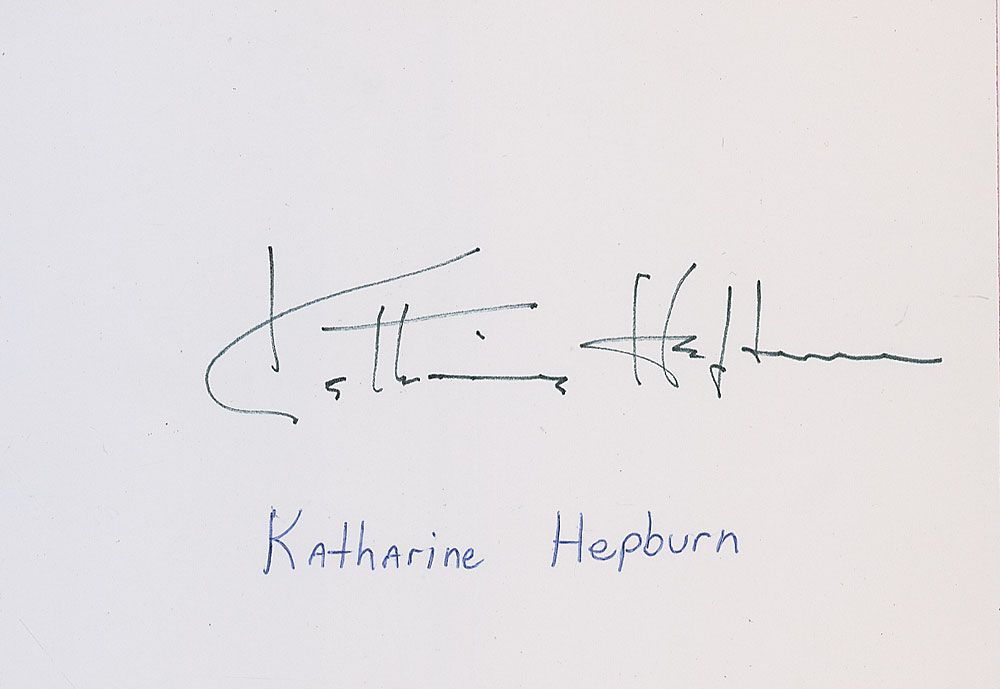 Katharine Hepburn
Katharine Hepburn